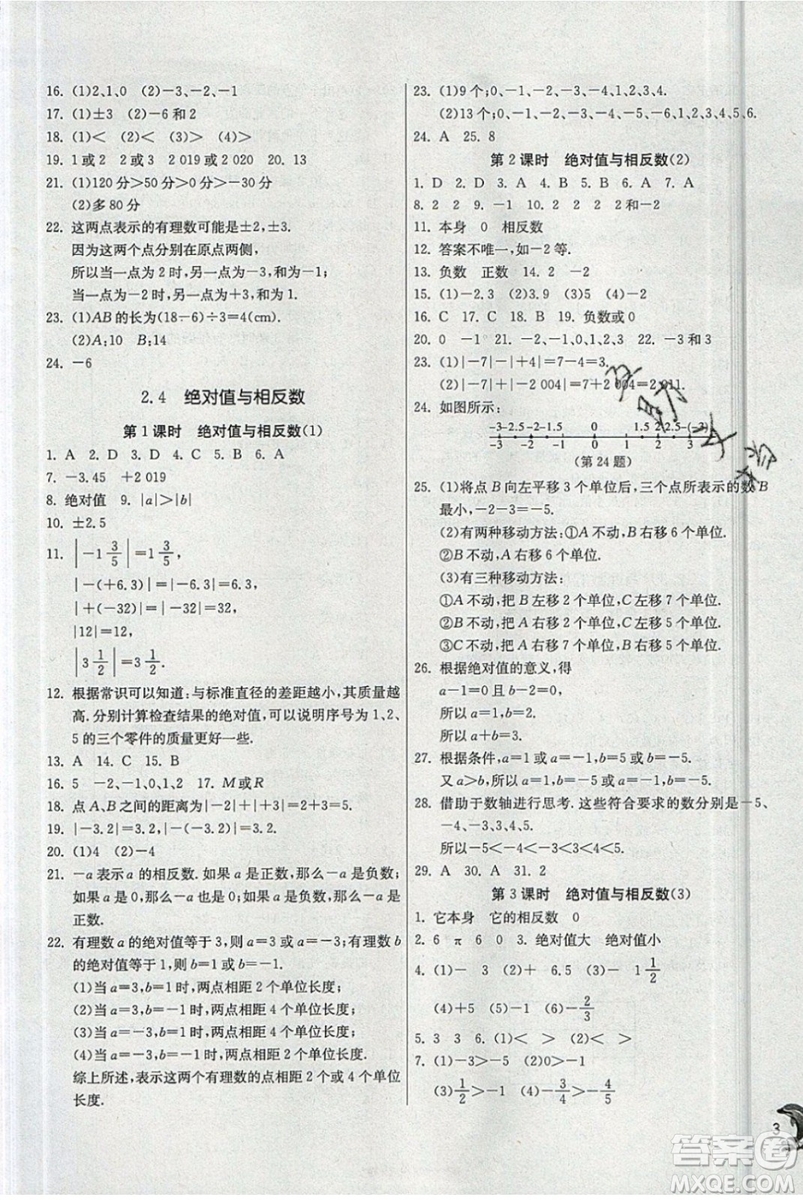 16. (1)2、1、0 (2)-3、-2、-1
17. (1)±3 (2)-6 和 2
18. (1)< (2)< (3)> (4)>
19. 1 或 2 2 或 3 2 019 或 2 020 20. 13
21. (1)120 分>50 分>0 分>-30 分
(2)多 80 分
22. 这两点表示的有理数可能是±2,±3.
因为这两个点分别在原点两侧,
所以当一点为 2 时,另一点为-3,和为-1;
当一点为-2 时,另一点为+3,和为 1.
23. (1)AB 的长为(18-6)÷3=4(cm).
(2)A:10 B:14
24. -6
2.4 绝对值与相反数
第 1 课时 绝对值与相反数(1)
1. A 2. D 3. D 4. C 5. B 6. A
7. -3.45 +2 019
8. 绝对值 9. |a|>|b|
10. ±2.5
11. |-1 3/5|=1 3/5,
|-(+6.3)|=|-6.3|=6.3,
|+(-32)|=|-32|=32,
|12|=12,
|3 1/2|=3 1/2.
12. 根据常识可以知道:与标准直径的差距越小,其质量越
高.分别计算检查结果的绝对值,可以说明序号为 1、2、
5 的三个零件的质量更好一些.
13. A 14. C 15. B
16. 5 -2、-1、0、1、2 17. M或R
18. 点A、B之间的距离为|-2|+|+3|=2+3=5.
19. |-3.2|=3.2,|-(-3.2)|=|3.2|=3.2.
20. (1)4 (2)-4
21. -a 表示 a 的相反数.如果 a 是正数,那么-a 是负数;
如果 a 是 0,那么-a 也是 0;如果 a 是负数,那么-a 是
正数.
22. 有理数 a 的绝对值等于 3,则 a=3 或 a=-3;有理数 b
的绝对值等于 1,则 b=1 或 b=-1.
(1)当 a=3,b=1 时,两点相距 2 个单位长度;
(2)当 a=3,b=-1 时,两点相距 4 个单位长度;
(3)当 a=-3,b=1 时,两点相距 4 个单位长度;
(4)当 a=-3,b=-1 时,两点相距 2 个单位长度.
综上所述,表示这两个有理数的点相距 2 个或 4 个单位
长度.
23. (1)9 个;0、-1、-2、-3、-4、1、2、3、4.
(2)13 个;0、-1、-2、-3、-4、-5、-6、1、2、3、4、5、6.
24. A 25. 8
第 2 课时 绝对值与相反数(2)
1. D 2. D 3. A 4. B 5. C 6. A 7. A
8. 2 9. -1 -5 10. 2 2 2 2 和-2
11. 本身 0 相反数
12. 答案不唯一,如-2 等.
13. 负数 正数 14. 2 -2
15. (1)-2 (2)3.9 (3)9 (4)2 (5)-2
16. C 17. C 18. B 19. 负数或 0
20. 0 -1 21. -2、-1、0、1、2 22. -3 和 3
23. (1)|-7|-|+4|=7-4=3.
(2)|-7|+|-2 004|=7+2 004=2 011.
24. 如图所示:
-3 -2.5 -2 -1.5 0 1.5 2 2.5 -(-3)
-3 -2 -1 0 1 2 3
(第 24 题)
25. (1)将点 B 向左平移 3 个单位后,三个点所表示的数 B
最小,-2-3=-5.
(2)有两种移动方法:①A 不动,B 右移 6 个单位.
②B 不动,A 右移 6 个单位.
(3)有三种移动方法:
①A 不动,把 B 左移 2 个单位,C 左移 7 个单位.
②B 不动,把 A 右移 2 个单位,C 左移 5 个单位.
③C 不动,把 A 右移 7 个单位,B 右移 5 个单位.
26. 根据绝对值的意义,得
a-1=0 且 b-2=0,
所以 a=1,b=2,
所以 a+b=3.
27. 根据条件,a=1 或 a=-1,b=5 或 b=-5.
又 a>b,所以 a=1 或 a=-1,b=-5.
28. 借助于数轴进行思考.这些符合要求的数分别是-5、
-4、-3、3、4、5.
所以-5<-4<-3<3<4<5.
29. A 30. A 31. 2
第 3 课时 绝对值与相反数(3)
1. 它本身 它的相反数 0
2. 6 π 6 0 3. 绝对值大 绝对值小
4. (1)- 3 (2)+ 6.5 (3)- 1 1/2
(4)+5 (5)- 2/3
5. 3 3 6. (1)< > (2)< >
7. (1)1/2>-1/3 (2)-3.5>-4.5
(3)1/2>-1 (4)-1/3>-1/2
3
答案圈
MXQE.COM